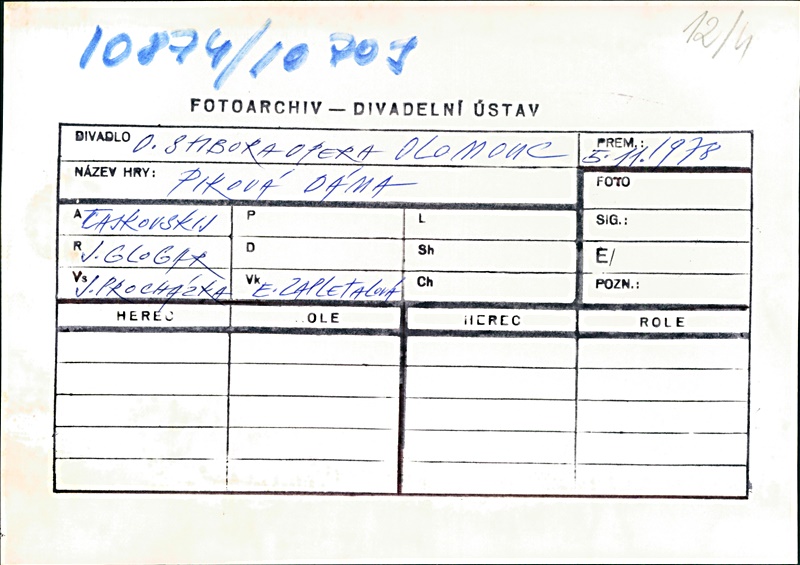 10874/10709
12/4
FOTOARCHIV — DIVADELNÍ ÚSTAV
DIVADLO O. STIBORA OPERA OLOMOUC
PREM.: 5.11.1978
NÁZEV HRY: PIKOVÁ DÁMA
FOTO
A ČAJKOVSKIJ P L
SIG.:
R J. GLOGAR D Sh
E/
Vs J. PROCHÁZKA Vk E. ZAPLETALOVÁ Ch
POZN.:
HEREC OLE HEREC ROLE